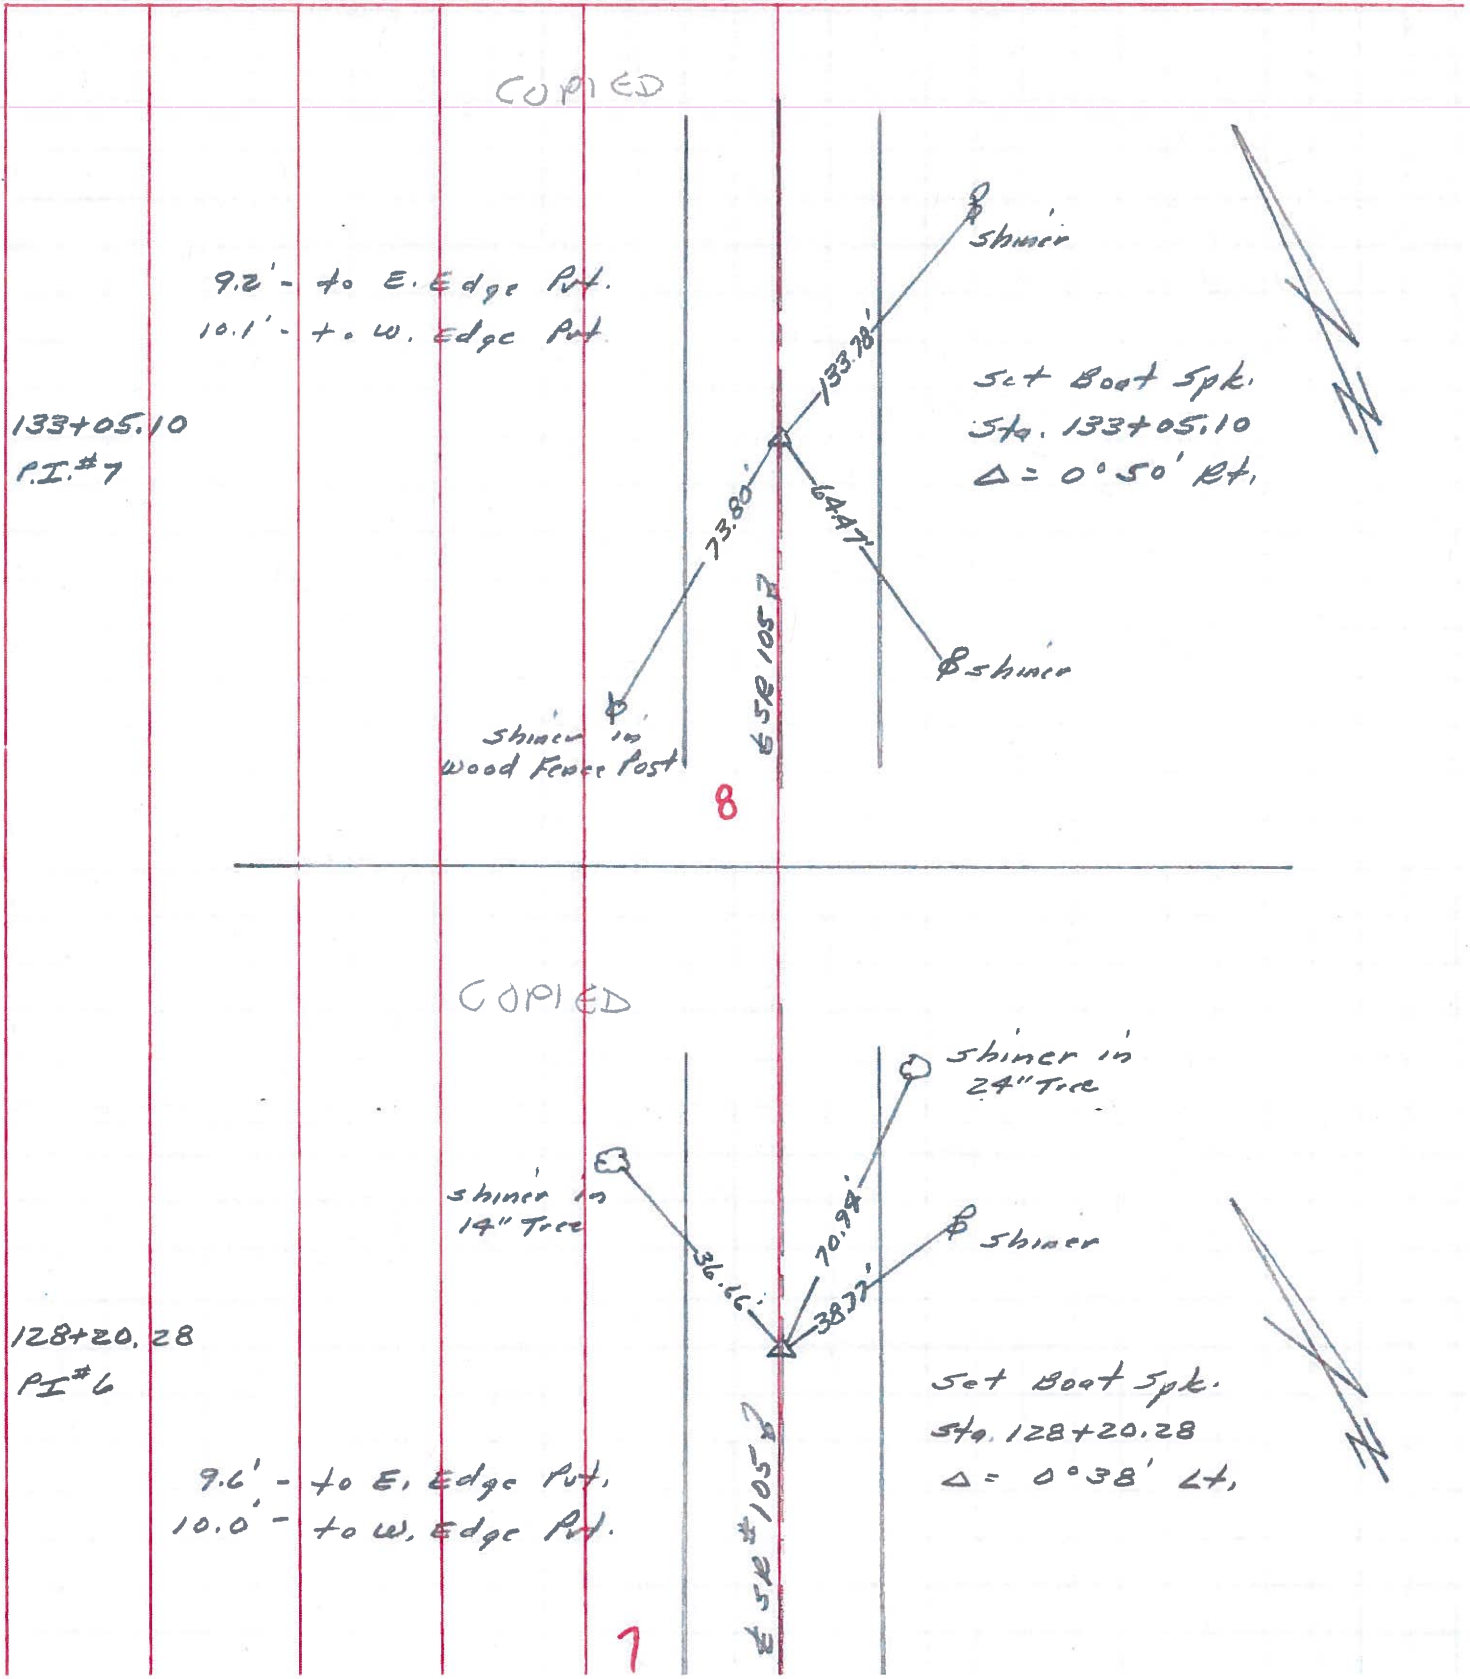 COPIED
shiner
9.2' - to E. Edge Pvt.
10.1' - to W. Edge Pvt.
133.78'
Set Boat Spk.
133+05.10
Sta. 133+05.10
P.I. #7
Δ = 0°50' Rt.
73.80'
64.47'
℄ SR 105
shiner
shiner in
Wood Fence Post
8
COPIED
shiner in
24" Tree
shiner in
14" Tree
70.94'
shiner
36.66'
38.77'
128+20.28
PI #6
Set Boat Spk.
Sta. 128+20.28
Δ = 0°38' Lt.
9.6' - to E. Edge Pvt.
10.0' - to W. Edge Pvt.
℄ SR #105
7